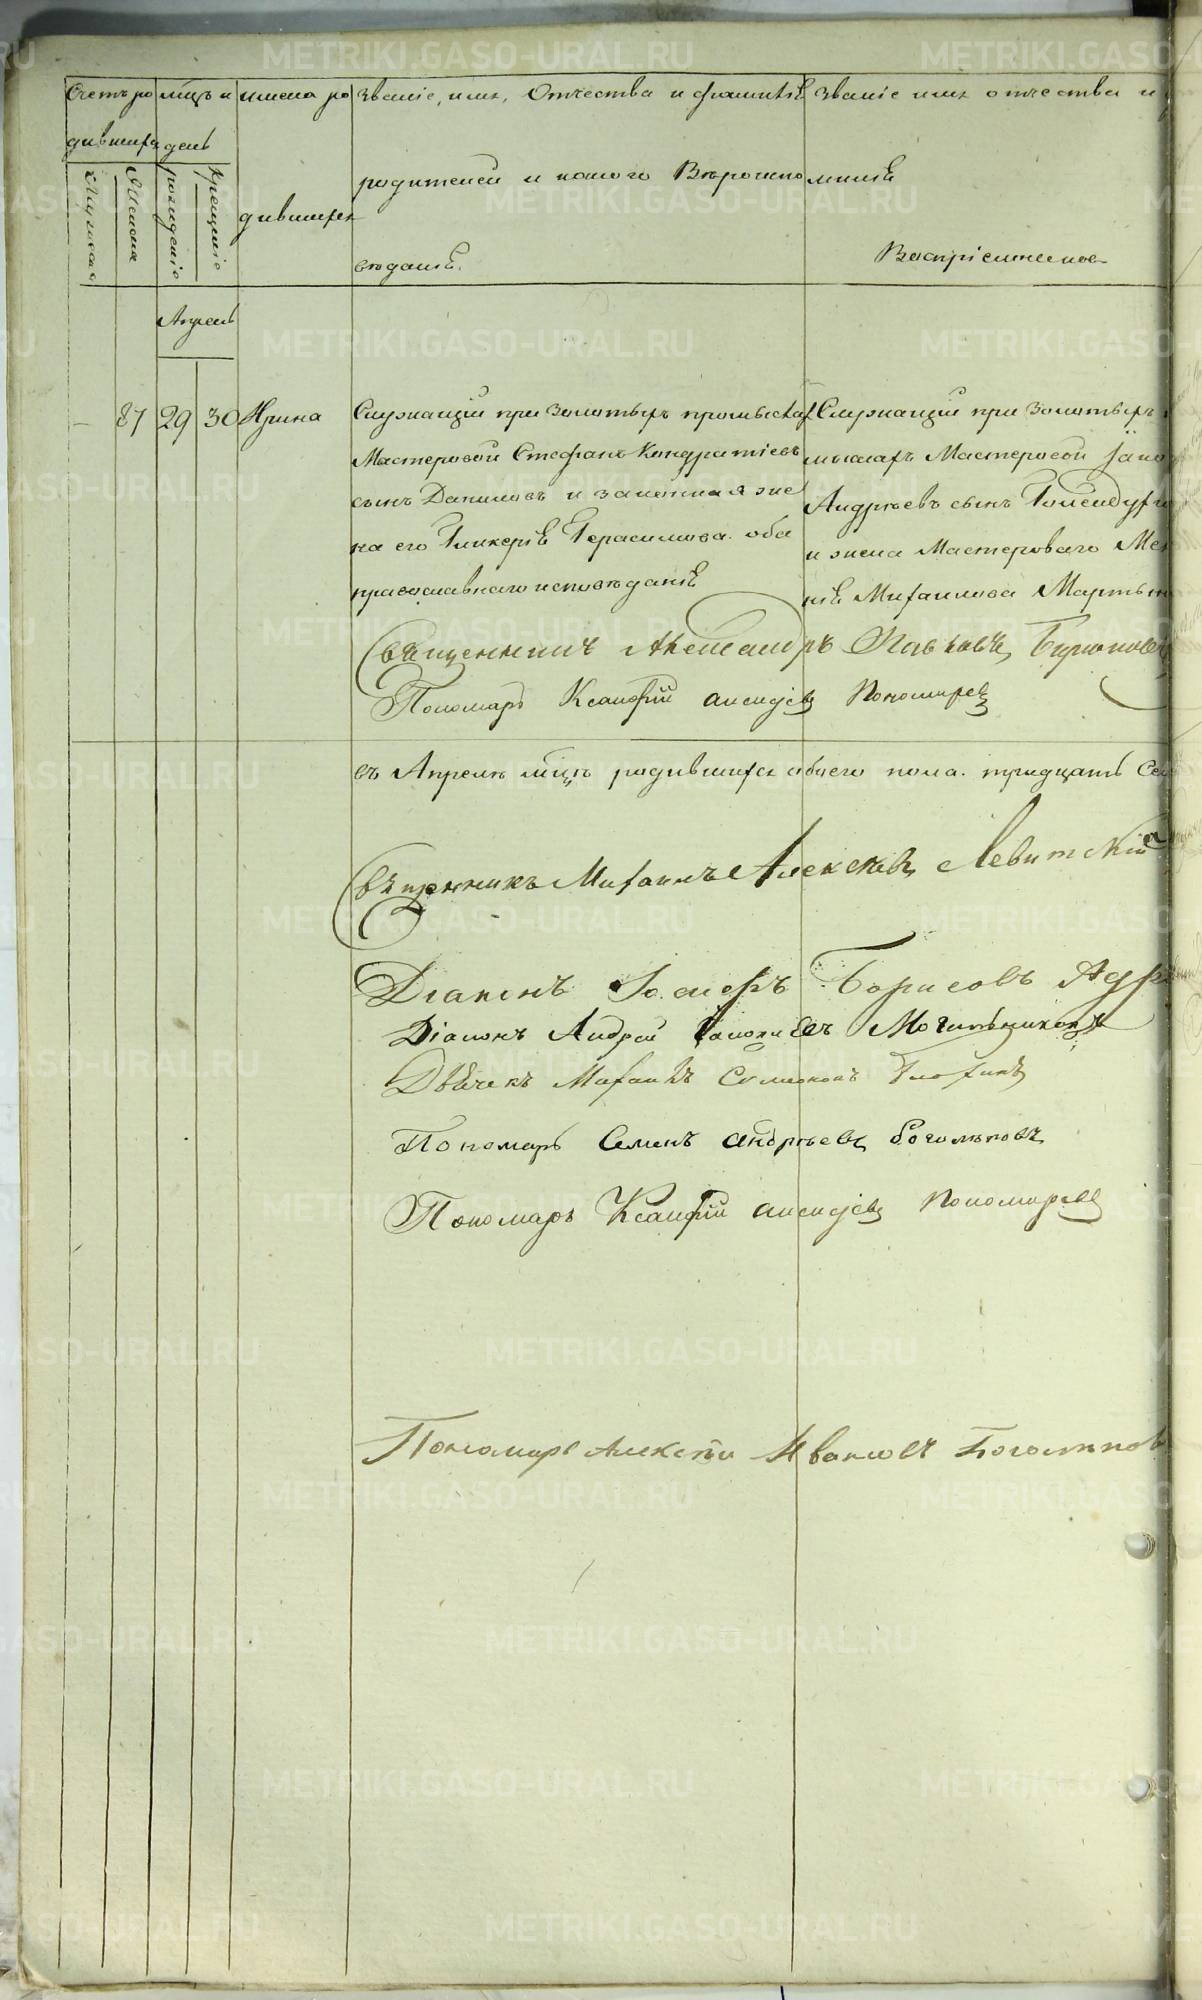 Счетъ ро
дившихся
Мужеска
Женска
мцъ и
день
рожденіе
крещеніе
имена ро
дившихся
Званіе, имя, Отчества и фамиліи
родителей и какого Вѣроиспо
вѣданія.
Званіе имя отчества и
миліи
Воспріемниковъ
Апрель
87 29 30 Ирина
Служащій при золотыхъ промыслах
Мастеровой Стефанъ Кондратіевъ
сынъ Даниловъ и законная же
на его Гликерія Герасимова оба
православнаго исповѣданія
Служащій при золотыхъ
мыслахъ Мастеровой
Андрѣевъ сынъ
и жена Мастероваго
нія Михаилова
Священникъ Александръ Павловъ
Пономарь Ксанофій Пономаревъ
въ Апрелѣ мцѣ родившихся обоего пола тридцать
Священникъ Михаилъ Алексѣевъ Левитскій
Діаконъ Іосифъ Борисовъ
Діаконъ Андрей Могильниковъ
Дьячекъ Михаилъ Симеоновъ
Пономарь Семенъ Андрѣевъ Богомоловъ
Пономарь Ксанфій Пономаревъ
Пономарь Алексѣй Ивановъ
METRIKI.GASO-URAL.RU